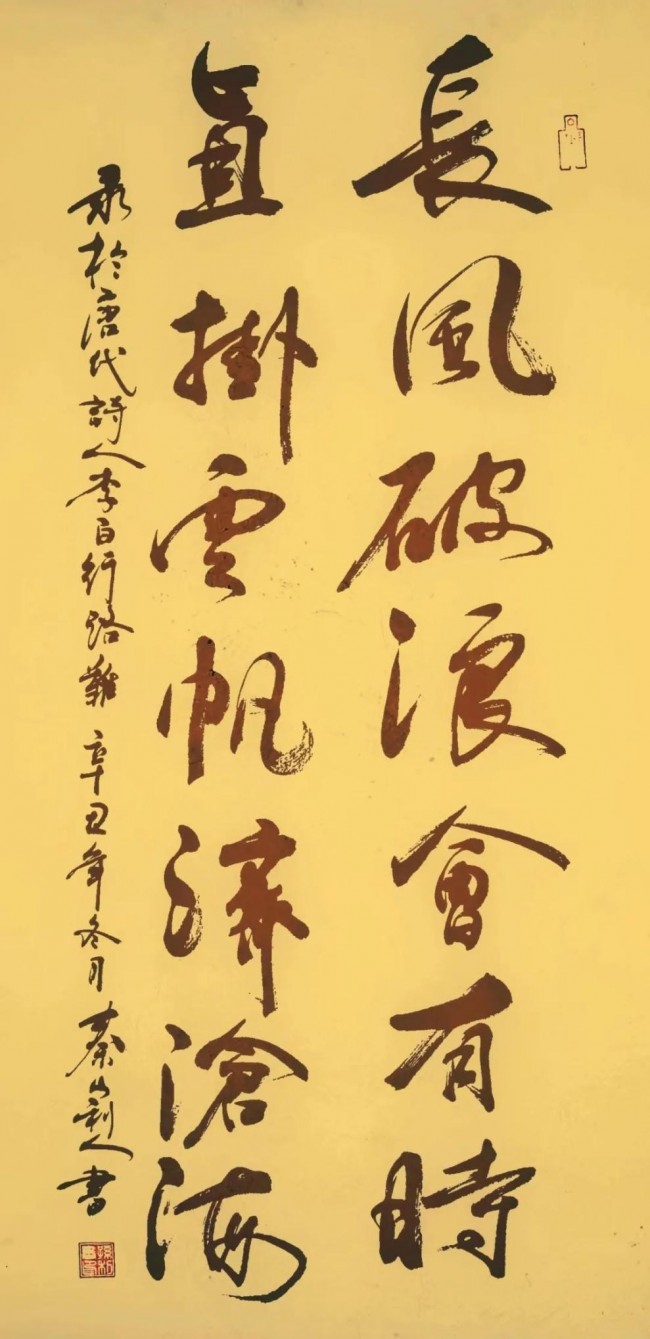 長風破浪會有時
直掛雲帆濟滄海
录於唐代詩人李白行路難 辛丑年冬月 泰山利人書